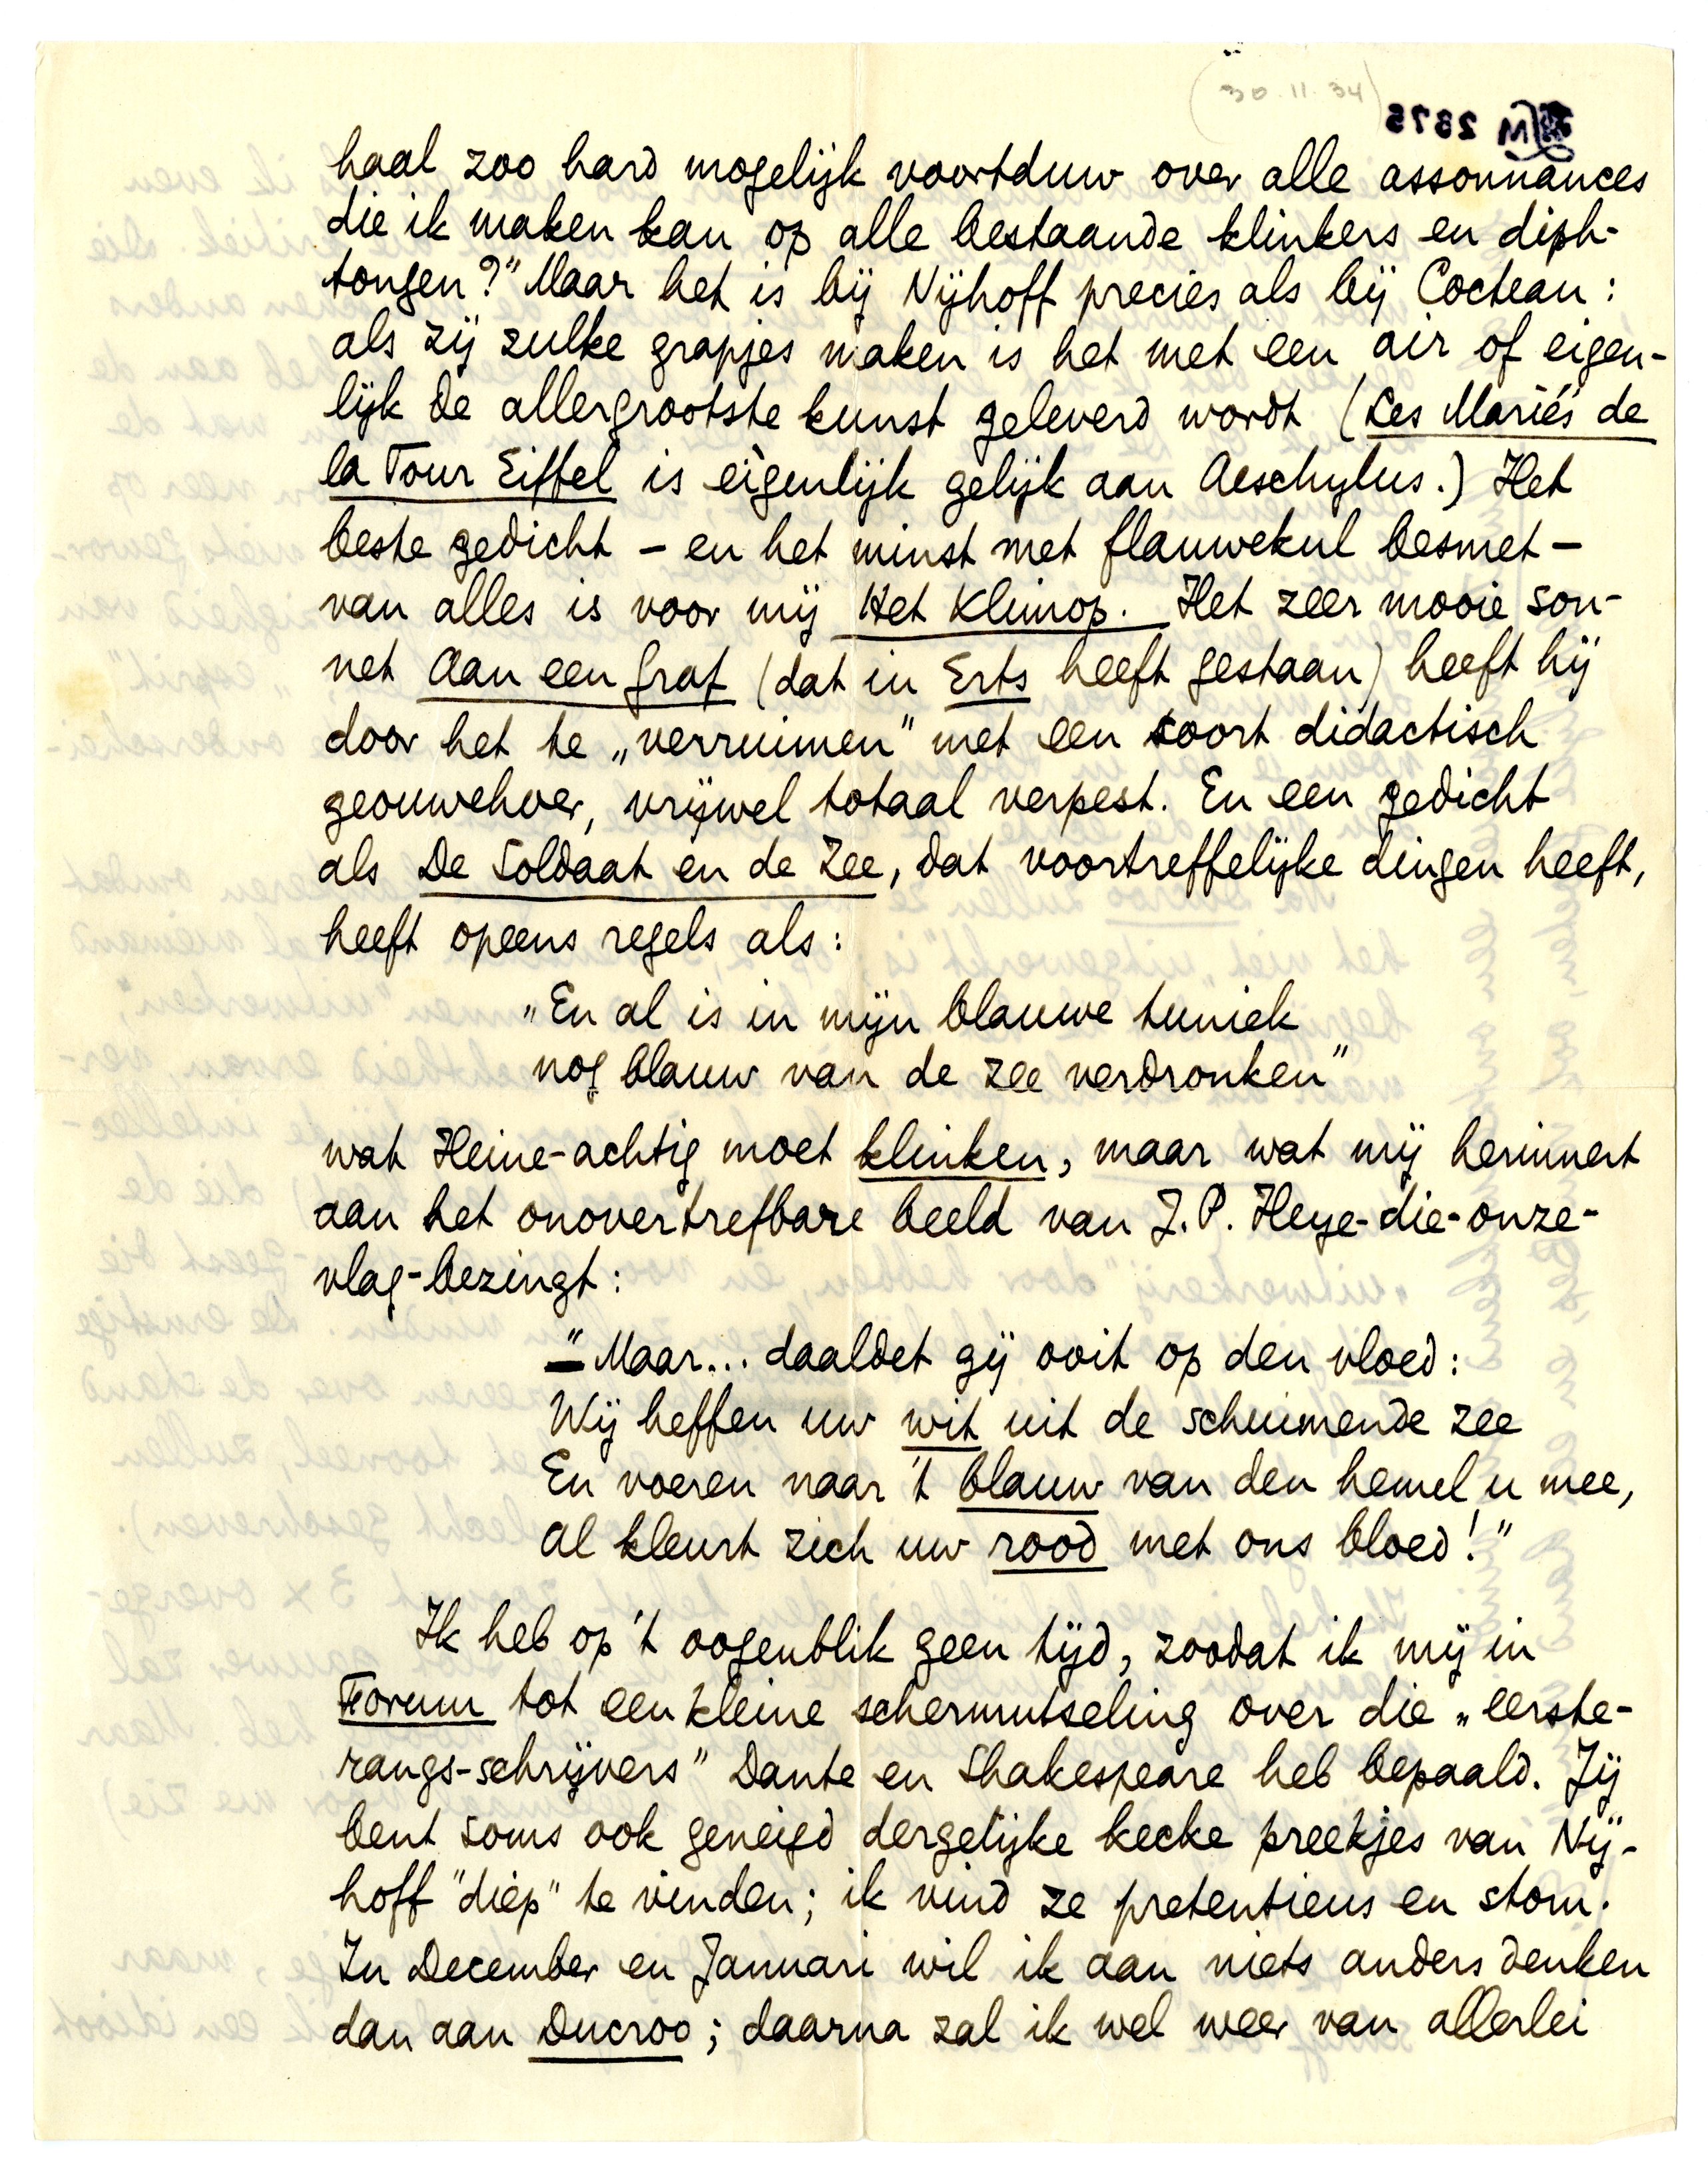 (30.11.34)
LM 2375
haal zoo hard mogelijk voortduw over alle assonnances
die ik maken kan op alle bestaande klinkers en diph-
tongen?" Maar het is bij Nijhoff precies als bij Cocteau:
als zij zulke grapjes maken is het met een air of eigen-
lijk de allergrootste kunst geleverd wordt (Les Mariés de
la Tour Eiffel is eigenlijk gelijk aan Aeschylus.) Het
beste gedicht – en het minst met flauwekul besmet –
van alles is voor mij Het Klimop. Het zeer mooie son-
net Aan een Graf (dat in Erts heeft gestaan) heeft hij
door het te „verruimen" met een soort didactisch
geouwehoer, vrijwel totaal verpest. En een gedicht
als De Soldaat en de Zee, dat voortreffelijke dingen heeft,
heeft opeens regels als:
„En al is in mijn blauwe tuniek
nog blauw van de zee verdronken"
wat Heine-achtig moet klinken, maar wat mij herinnert
aan het onovertrefbare beeld van J.P. Heye-die-onze-
vlag-bezingt:
"Maar... daaldet gij ooit op den vloed:
Wij heffen uw wit uit de schuimende zee
En voeren naar 't blauw van den hemel u mee,
Al kleurt zich uw rood met ons bloed!"
Ik heb op 't oogenblik geen tijd, zoodat ik mij in
Forum tot een kleine schermutseling over die „eerste-
rangs-schrijvers" Dante en Shakespeare heb bepaald. Jij
bent soms ook geneigd dergelijke kecke preekjes van Nij-
hoff "diep" te vinden; ik vind ze pretentieus en stom.
In December en Januari wil ik aan niets anders denken
dan aan Ducroo; daarna zal ik wel weer van allerlei